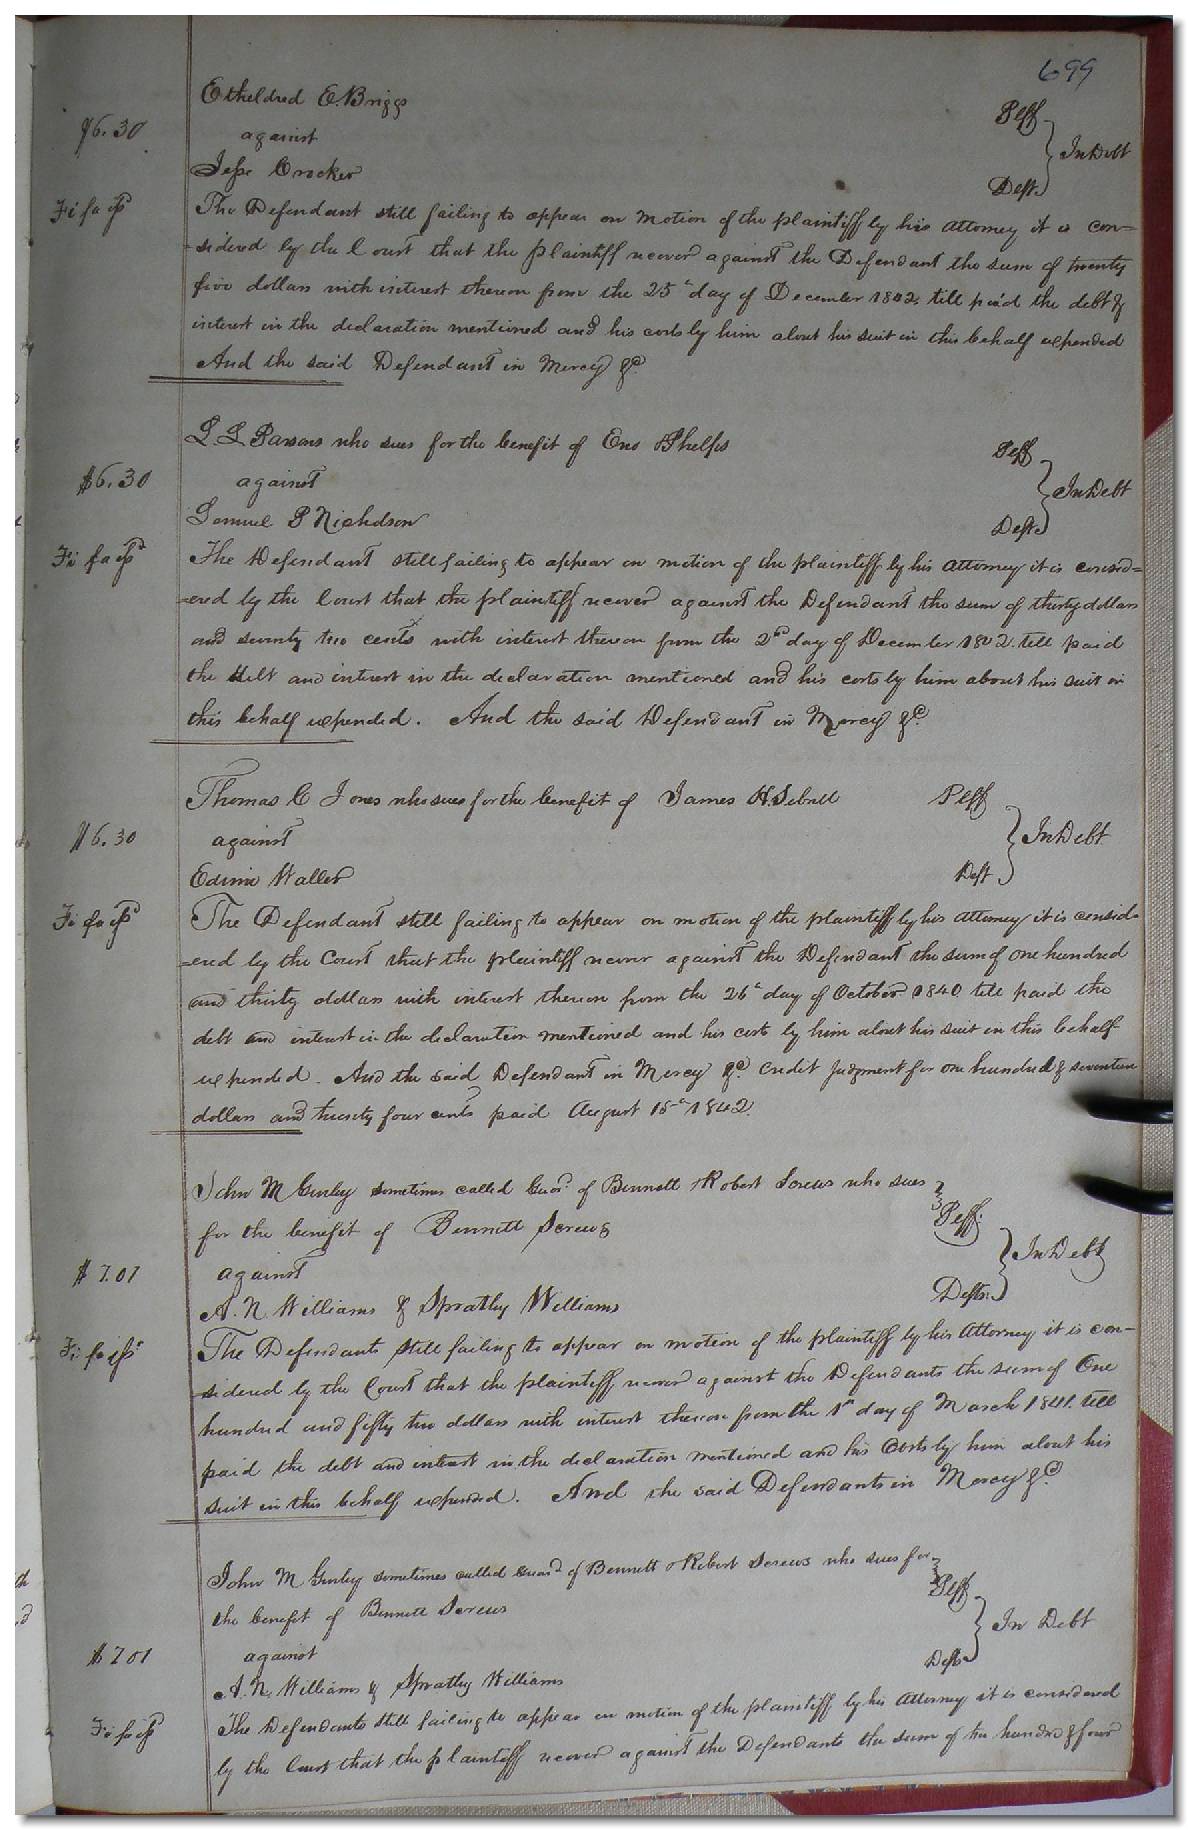 699
Etheldred E. Briggs Plff
$6.30 against In Debt
Jesse Crocker Deft
Fi fa issd The Defendant still failing to appear on motion of the plaintiff by his attorney it is con-
-sidered by the Court that the plaintiff recover against the Defendant the sum of twenty
five dollars with interest thereon from the 25th day of December 1842. till paid the debt &
interest in the declaration mentioned and his costs by him about his suit in this behalf expended
And the said Defendant in Mercy &c
L L Parsons who sues for the benefit of Eno Phelps Plff
$6.30 against In Debt
Samuel P Nicholson Deft
Fi fa issd The Defendant still failing to appear on motion of the plaintiff by his attorney it is consid=
=ered by the Court that the plaintiff recover against the Defendant the sum of thirty dollars
and seventy two cents with interest thereon from the 2nd day of December 1842. till paid
the debt and interest in the declaration mentioned and his costs by him about his suit in
this behalf expended. And the said Defendant in Mercy &c
Thomas C Jones who sues for the benefit of James H. Sebrell Plff
$6.30 against In Debt
Edwin Waller Deft
Fi fa issd The Defendant still failing to appear on motion of the plaintiff by his attorney it is consid-
=ered by the Court that the plaintiff recover against the Defendant the sum of one hundred
and thirty dollars with interest thereon from the 26th day of October 1840 till paid the
debt and interest in the declaration mentioned and his costs by him about his suit in this behalf
expended. And the said Defendant in Mercy &c. Credit Judgment for one hundred & seventeen
dollars and twenty four cents paid August 15th 1842.
John M Gurley sometimes called Guard. of Bennett & Robert Screws who sues
for the benefit of Bennett Screws Plff.
$7.01 against In Debt
A. N. Williams & Spratley Williams Defts.
Fi fa issd The Defendants still failing to appear on motion of the plaintiff by his Attorney it is con-
-sidered by the Court that the plaintiff recover against the Defendants the sum of One
hundred and fifty two dollars with interest thereon from the 1st day of March 1841. till
paid the debt and interest in the declaration mentioned and his Costs by him about his
suit in this behalf expended. And the said Defendants in Mercy &c.
John M Gurley sometimes called Guard of Bennett & Robert Screws who sues for
the benefit of Bennett Screws Plff
$7.01 against In Debt
A. N. Williams & Spratley Williams Defts
Fi fa issd The Defendants still failing to appear on motion of the plaintiff by his Attorney it is considered
by the Court that the plaintiff recover against the Defendants the sum of hundred & four